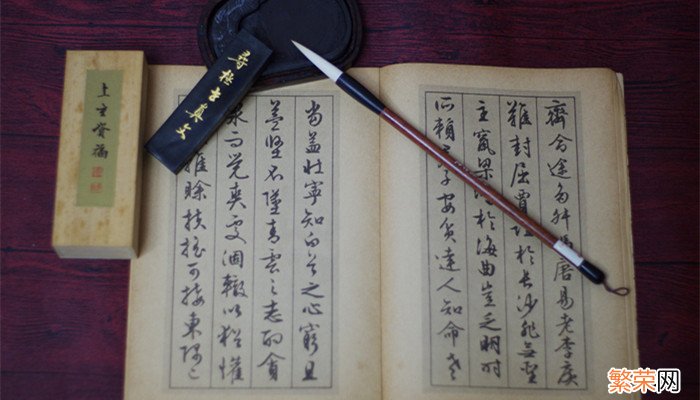 齊命途多舛馮唐易老李廣
難封屈賈誼於長沙非無聖
主竄梁鴻於海曲豈乏明時
所賴君子安貧達人知命老
當益壯寧知白首之心窮且
益堅不墜青雲之志酌貪
泉而覺爽處涸轍以猶懽
雖賒扶搖可接東隅已
繁荣网